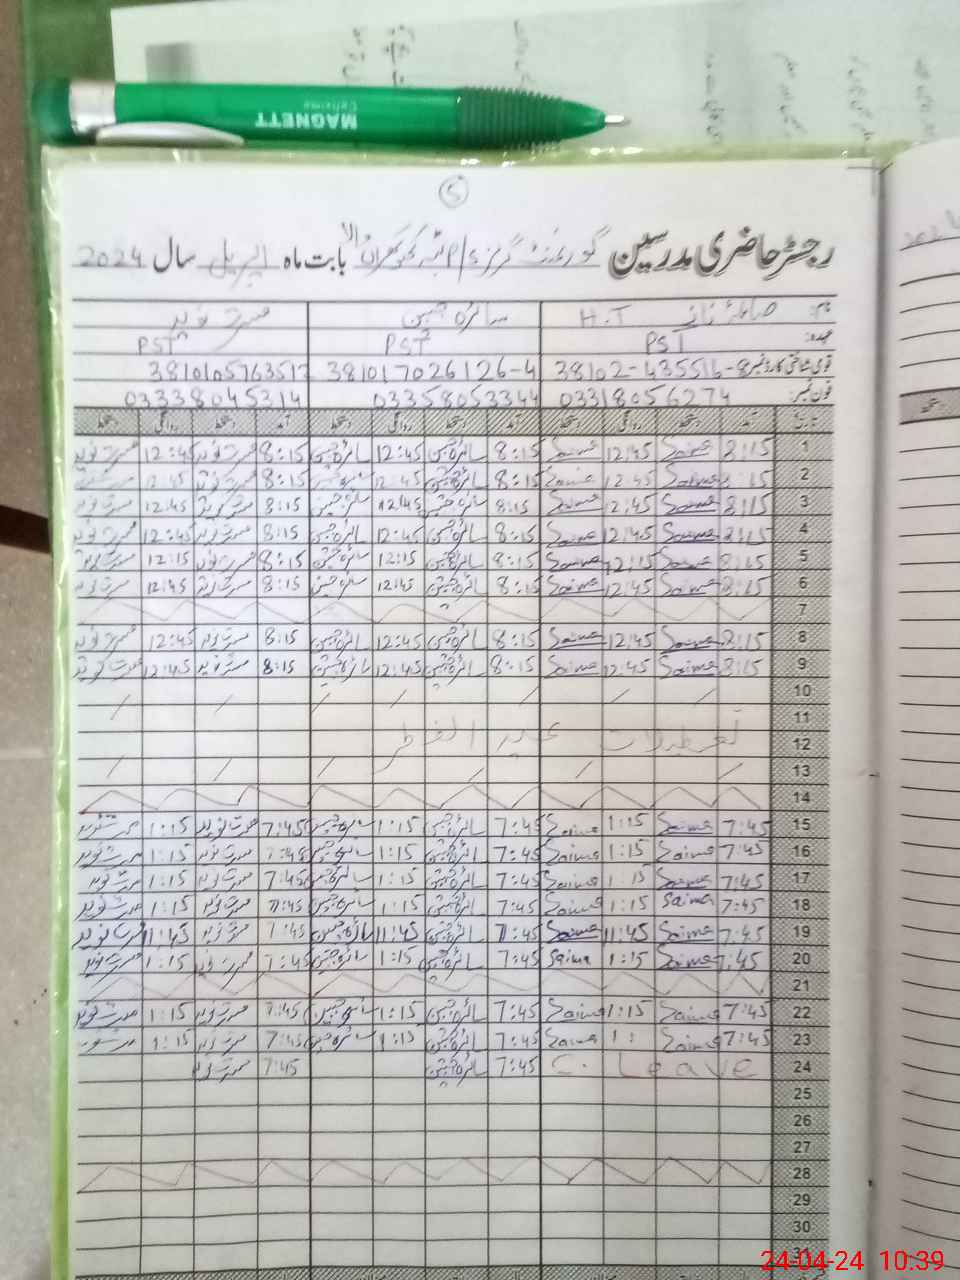 MAGNETT
5
رجسٹر حاضری مدرسین گورنمنٹ گرلز P/S بابت ماہ اپریل سال 2024
نام: صائمہ ناز H.T سائرہ جبین مسرت نوید
عہدہ: PST PST PST
قومی شناختی کارڈ نمبر 38102-435516-8 381017026126-4
فون نمبر: 03318056274 03358053344 03338045314
تاریخ آمد دستخط روانگی دستخط آمد دستخط روانگی دستخط آمد دستخط روانگی دستخط
1 8:15 Saima 12:45 Saima 8:15 سائرہ جبین 12:45 سائرہ جبین 8:15 مسرت نوید 12:45 مسرت نوید
2 8:15 Saima 12:45 Saima 8:15 سائرہ جبین 12:45 سائرہ جبین 8:15 مسرت نوید 12:45 مسرت نوید
3 8:15 Saima 12:45 Saima 8:15 سائرہ جبین 12:45 سائرہ جبین 8:15 مسرت نوید 12:45 مسرت نوید
4 8:15 Saima 12:45 Saima 8:15 سائرہ جبین 12:45 سائرہ جبین 8:15 مسرت نوید 12:45 مسرت نوید
5 8:15 Saima 12:15 Saima 8:15 سائرہ جبین 12:15 سائرہ جبین 8:15 مسرت نوید 12:15 مسرت نوید
6 8:15 Saima 12:45 Saima 8:15 سائرہ جبین 12:45 سائرہ جبین 8:15 مسرت نوید 12:45 مسرت نوید
7
8 8:15 Saima 12:45 Saima 8:15 سائرہ جبین 12:45 سائرہ جبین 8:15 مسرت نوید 12:45 مسرت نوید
9 8:15 Saima 12:45 Saima 8:15 سائرہ جبین 12:45 سائرہ جبین 8:15 مسرت نوید 12:45 مسرت نوید
10
11
12 تعطیلات عید الفطر
13
14
15 7:45 Saima 1:15 Saima 7:45 سائرہ جبین 1:15 سائرہ جبین 7:45 مسرت نوید 1:15 مسرت نوید
16 7:45 Saima 1:15 Saima 7:45 سائرہ جبین 1:15 سائرہ جبین 7:45 مسرت نوید 1:15 مسرت نوید
17 7:45 Saima 1:15 Saima 7:45 سائرہ جبین 1:15 سائرہ جبین 7:45 مسرت نوید 1:15 مسرت نوید
18 7:45 Saima 1:15 Saima 7:45 سائرہ جبین 1:15 سائرہ جبین 7:45 مسرت نوید 1:15 مسرت نوید
19 7:45 Saima 11:45 Saima 7:45 سائرہ جبین 11:45 سائرہ جبین 7:45 مسرت نوید 11:45 مسرت نوید
20 7:45 Saima 1:15 Saima 7:45 سائرہ جبین 1:15 سائرہ جبین 7:45 مسرت نوید 1:15 مسرت نوید
21
22 7:45 Saima 1:15 Saima 7:45 سائرہ جبین 1:15 سائرہ جبین 7:45 مسرت نوید 1:15 مسرت نوید
23 7:45 Saima 1: Saima 7:45 سائرہ جبین 1:15 سائرہ جبین 7:45 مسرت نوید 1:15 مسرت نوید
24 C. Leave 7:45 سائرہ جبین 7:45 مسرت نوید
25
26
27
28
29
30
31
24-04-24 10:39